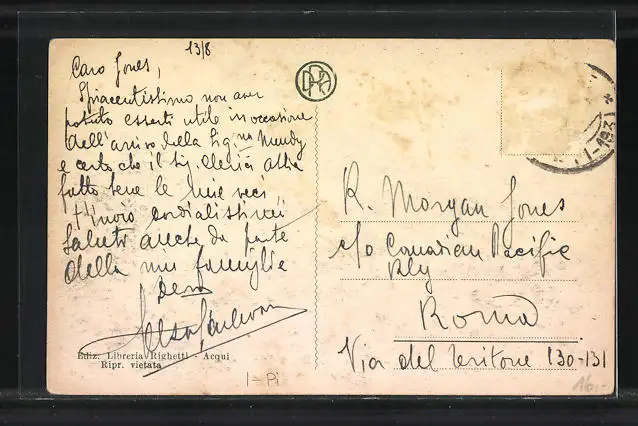 13/8
Caro Jones,
Spiacentissimo non aver
potuto esserti utile in occasione
dell'arrivo della Sig.na Mundy
e certo che il Sig. abbia
fatto bene le mie veci,
t'invio cordialissimi
saluti anche da parte
della mia famiglia
DPR
R. Morgan Jones
c/o Canadian Pacific
Rly
Roma
Via del Tritone 130-131
Ediz. Libreria Righetti - Acqui
Ripr. vietata
I-Pi
16,-